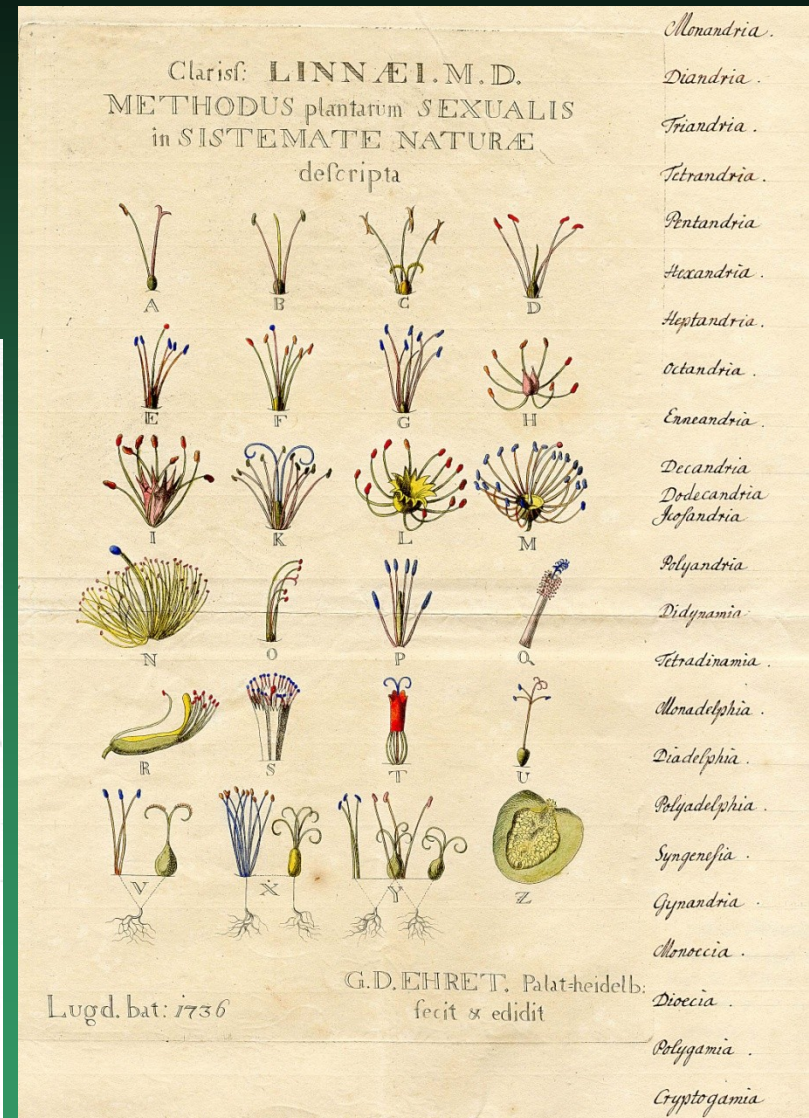 Clariſſ: LINNÆI. M. D.
METHODUS plantarum SEXUALIS
in SISTEMATE NATURÆ
deſcripta
A B C D
E F G H
I K L M
N O P Q
R S T U
V X Y Z
Lugd. bat: 1736
G. D. EHRET. Palat=heidelb:
fecit & edidit
Monandria.
Diandria.
Triandria.
Tetrandria.
Pentandria
Hexandria.
Heptandria.
Octandria.
Enneandria.
Decandria
Dodecandria
Jcoſandria
Polyandria
Didynamia
Tetradinamia.
Monadelphia.
Diadelphia.
Polyadelphia.
Syngeneſia.
Gynandria.
Monoecia.
Dioecia.
Polygamia.
Cryptogamia